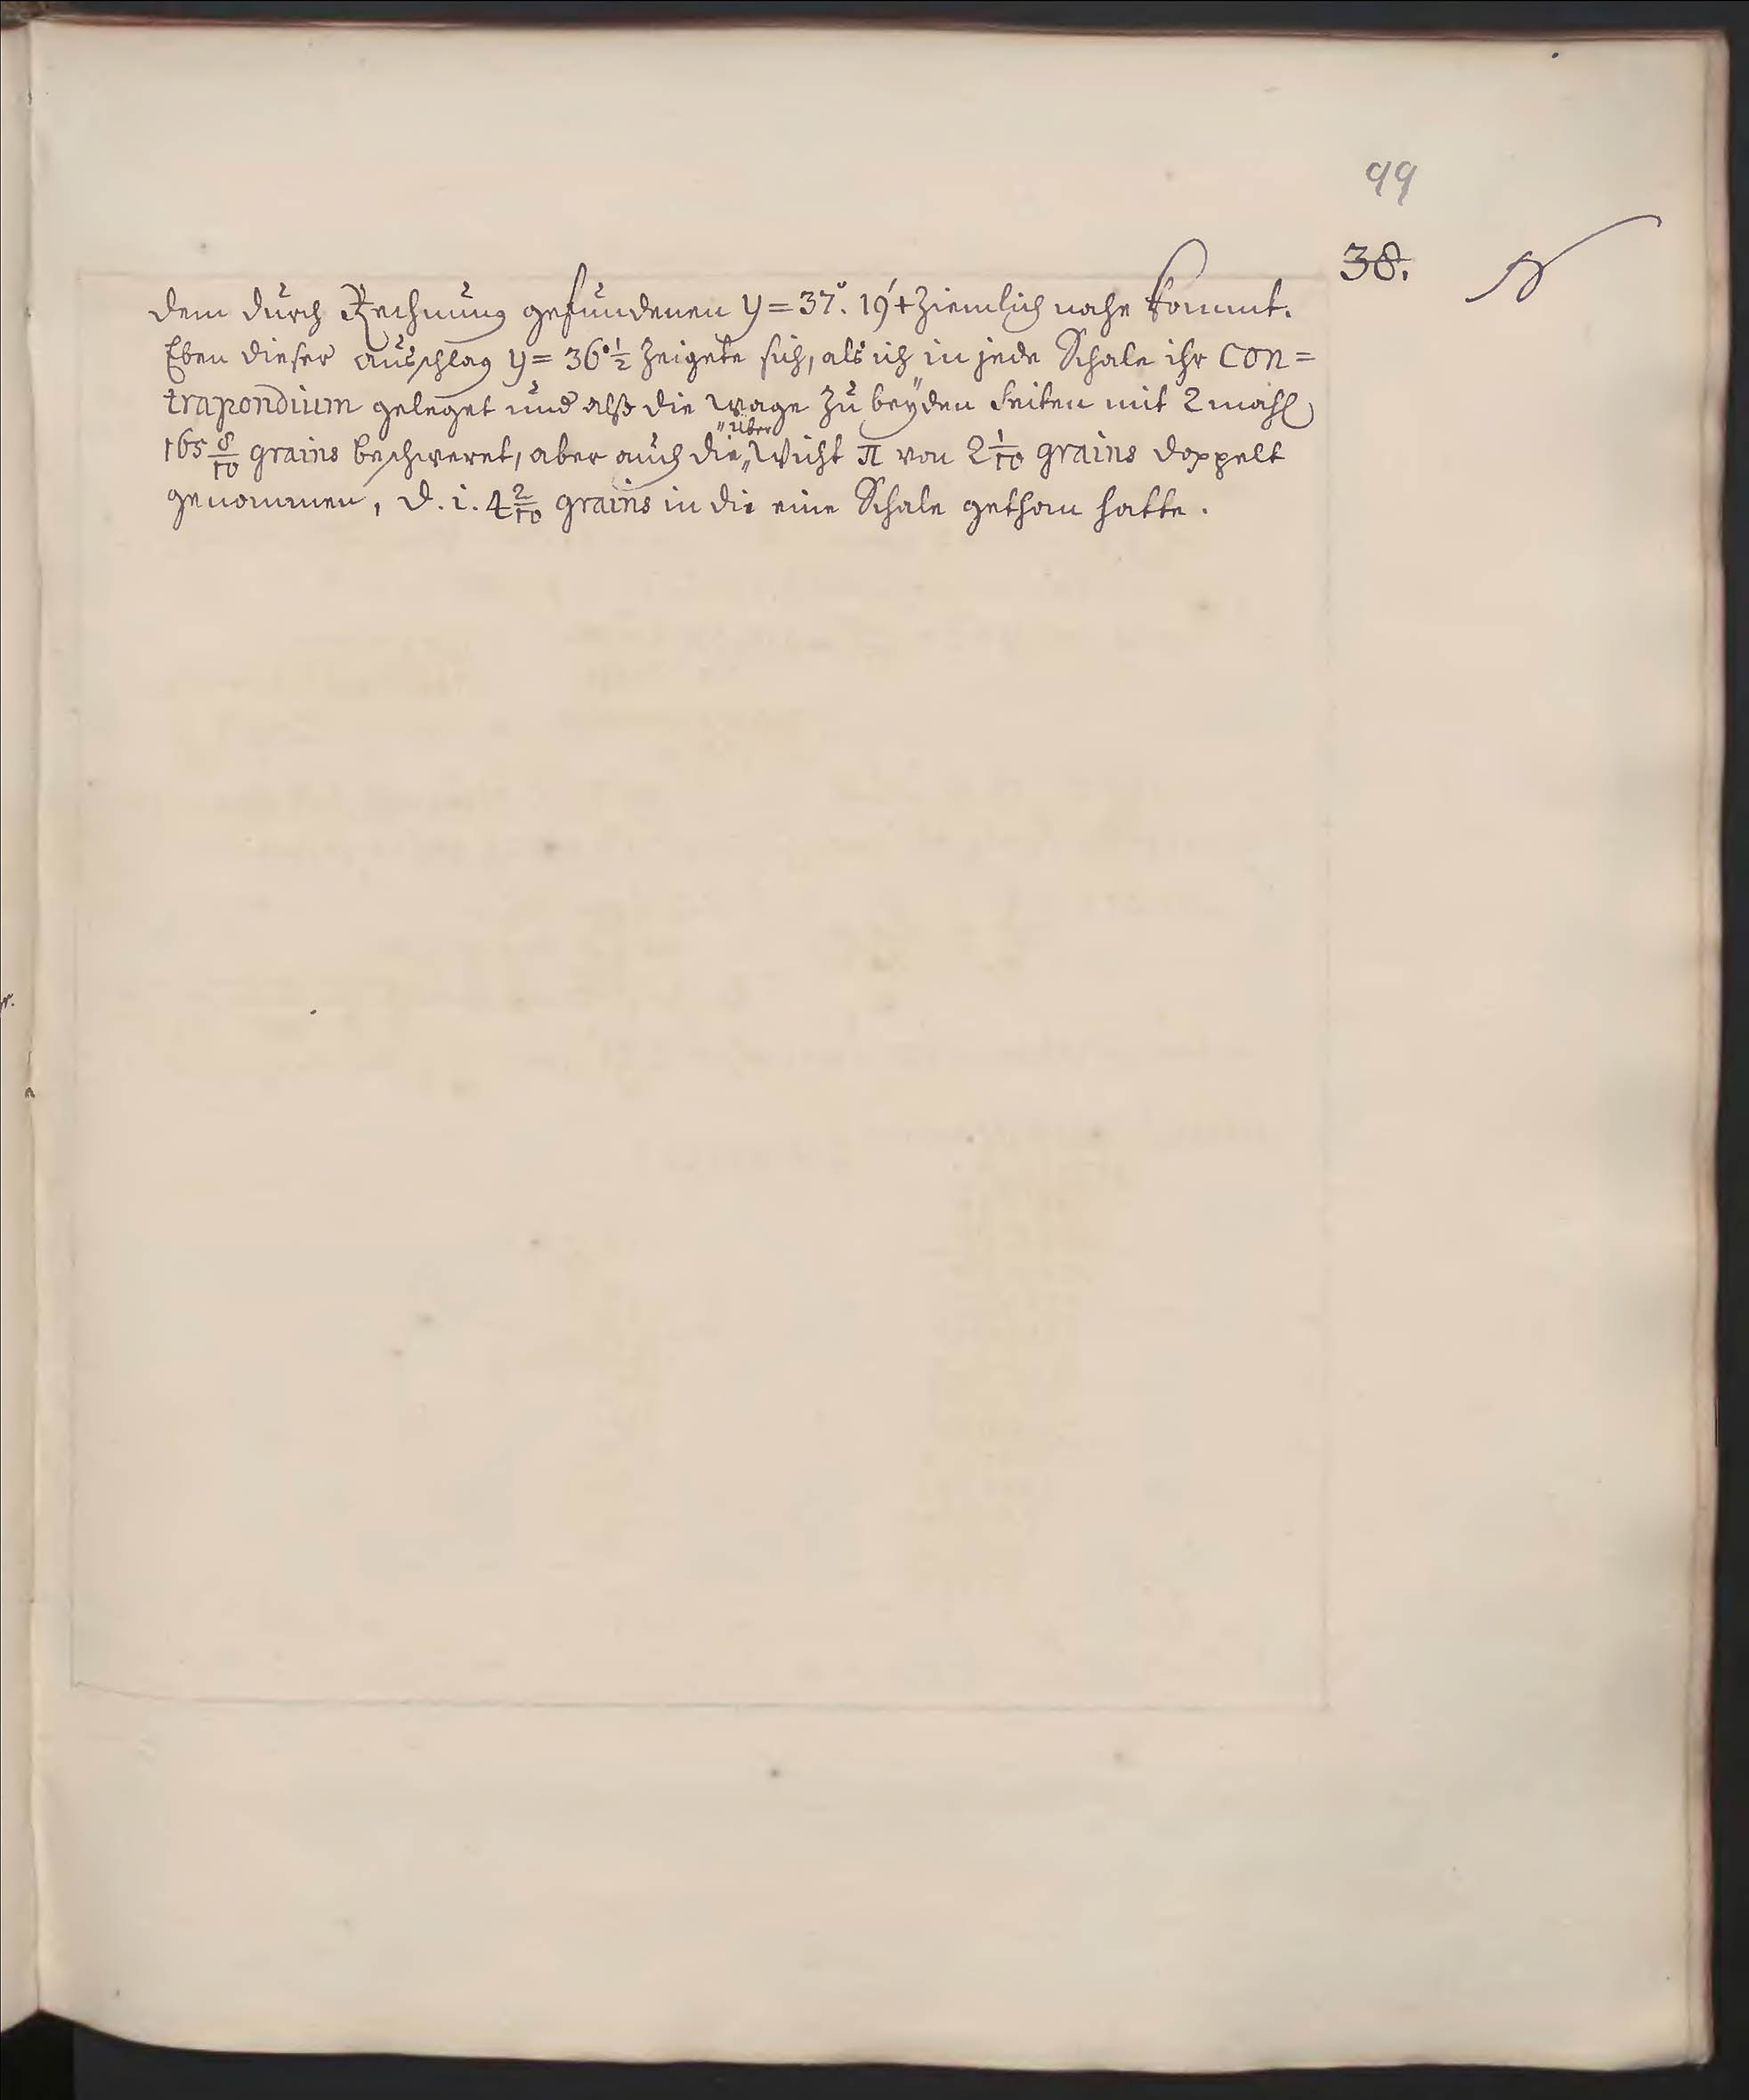 99
38.
dem durch Rechnung gefundenen y = 37°. 19' + ziemlich nahe kommt.
Eben dieser ausschlag y = 36°½ zeigete sich, als ich in jede Schale ihr Con=
trapondium geleget und alß die Wage zu beyden seiten mit 2 mahl
165 8/10 grains beschweret, aber auch die Über Wicht π von 2 1/10 grains doppelt
genommen, d. i. 4 2/10 grains in die eine Schale gethan hatte.